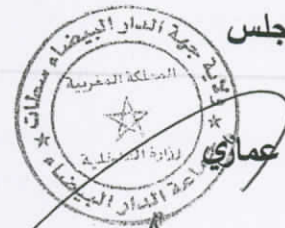 جلس
ولاية جهة الدار البيضاء سطات
المملكة المغربية
وزارة الداخلية
عماري
جماعة الدار البيضاء